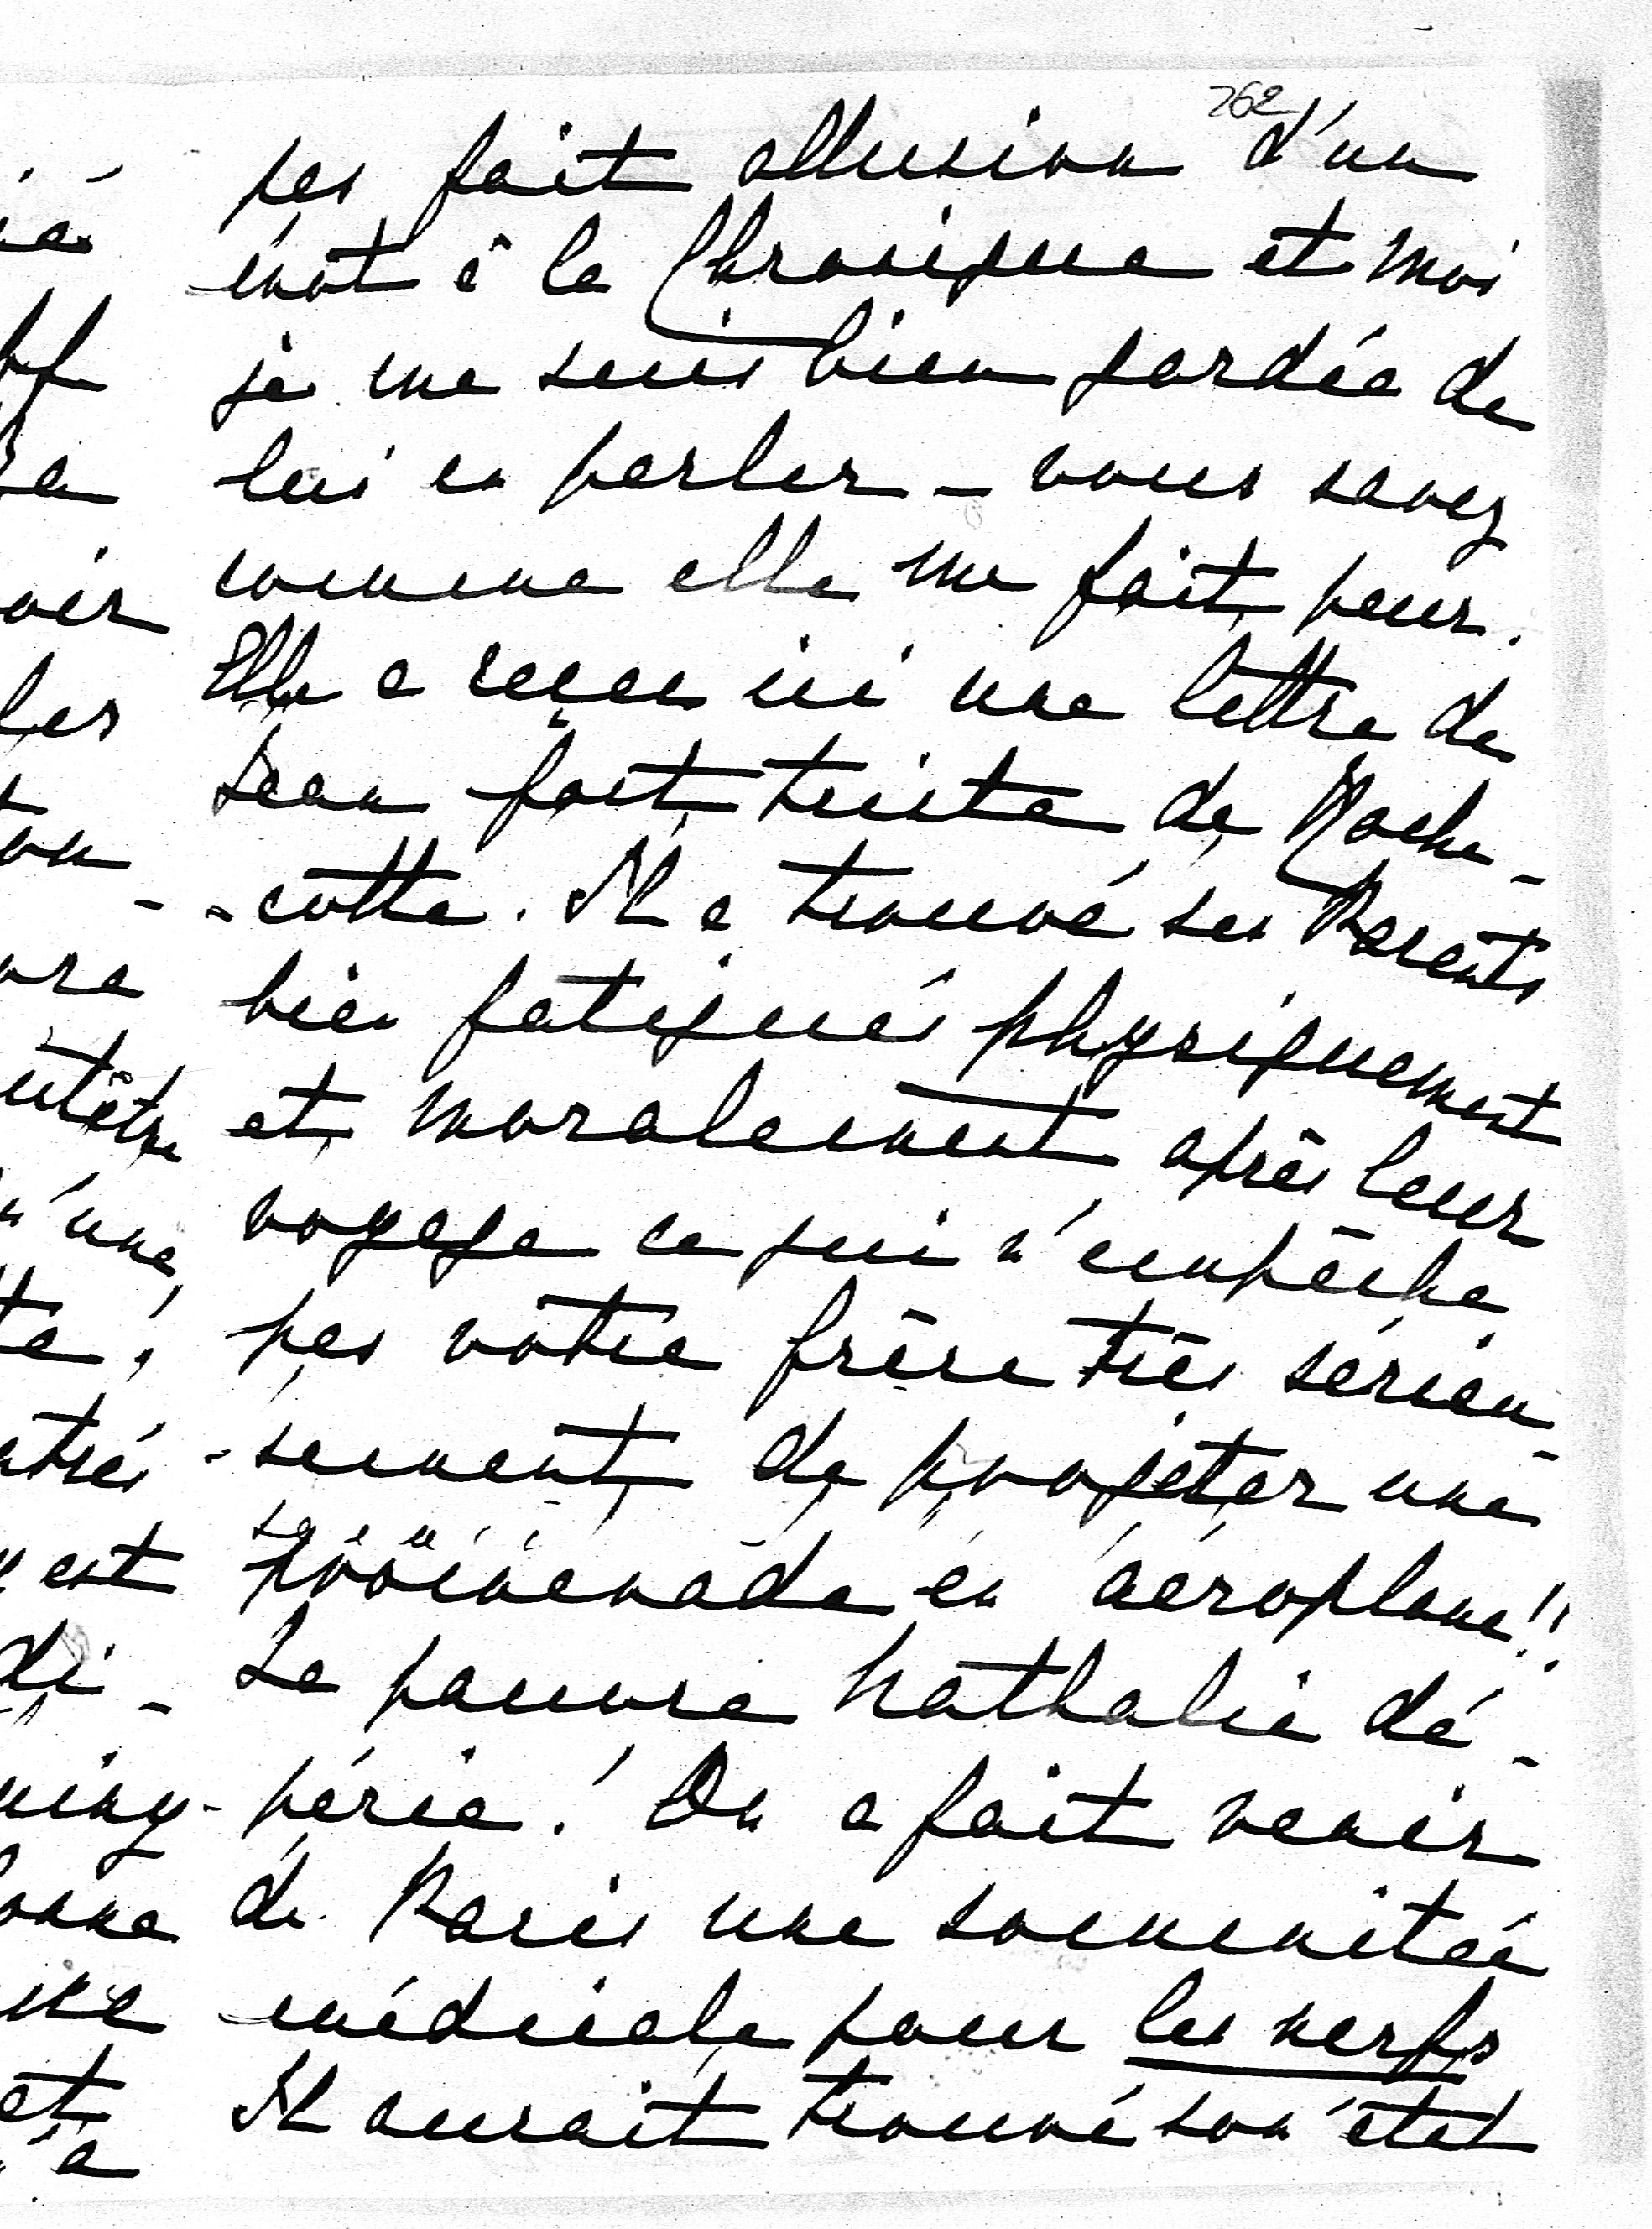 262
pas fait allusion d'un
mot à la Chronique et moi
je me suis bien gardée de
lui en parler - vous savez
comme elle me fait peur.
Elle a reçu ici une lettre de
Jean fort triste de Roche-
-cotte. Il a trouvé ses Parents
bien fatigués physiquement
et moralement après leur
voyage ce qui n'empêche
pas votre frère très sérieu-
-sement de projeter une
promenade en aéroplane!!
La pauvre Nathalie dé-
périe! On a fait venir
de Paris une sommitée
médicale pour les nerfs
Il aurait trouvé son état